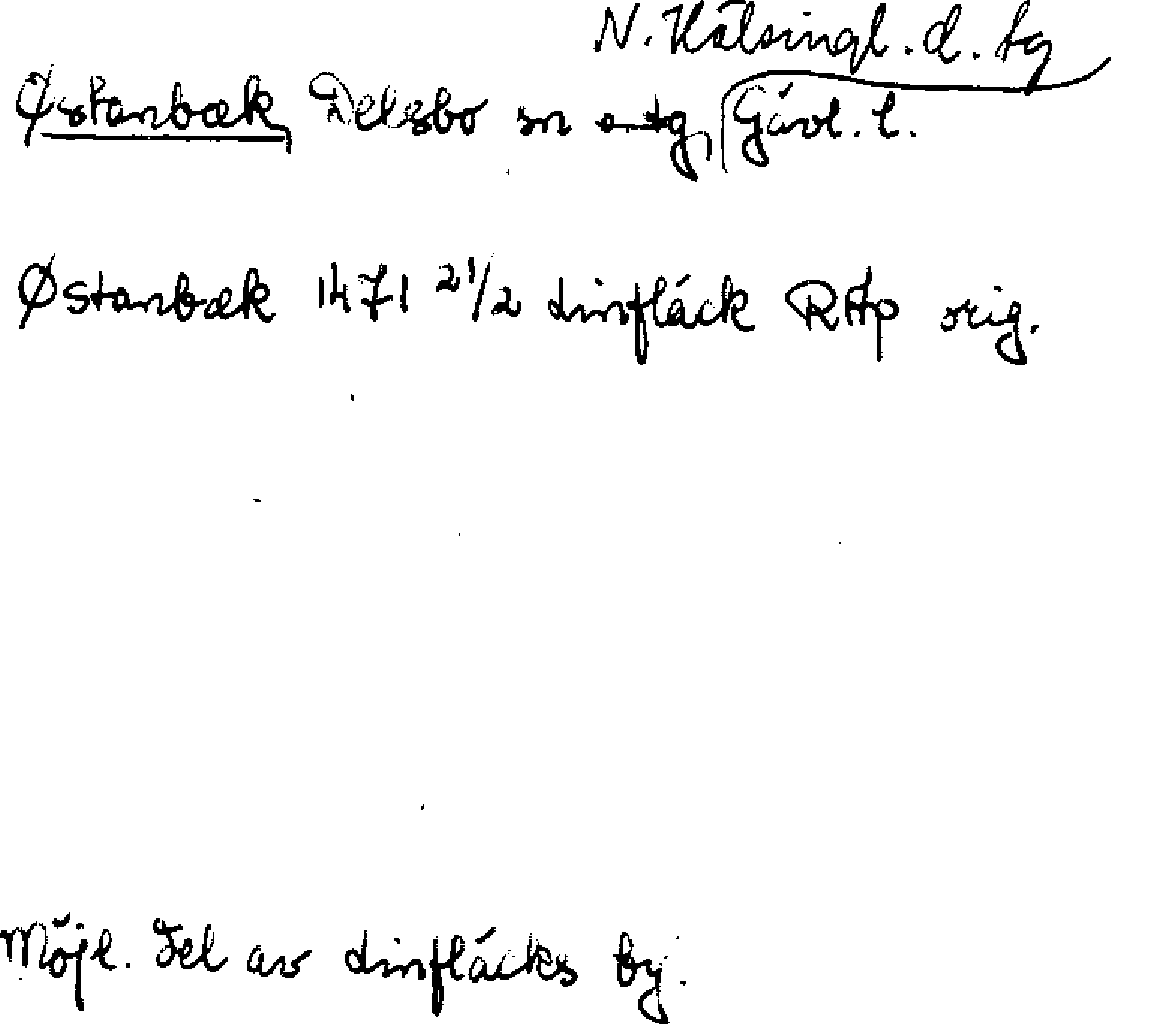 N. Hälsingl. d. tg
Østanbæk, Delsbo sn o tg, Gävl. l.
Østanbæk 1471 2 1/2 Linfläck RAp orig.
Möjl. Del av Linfläcks by.